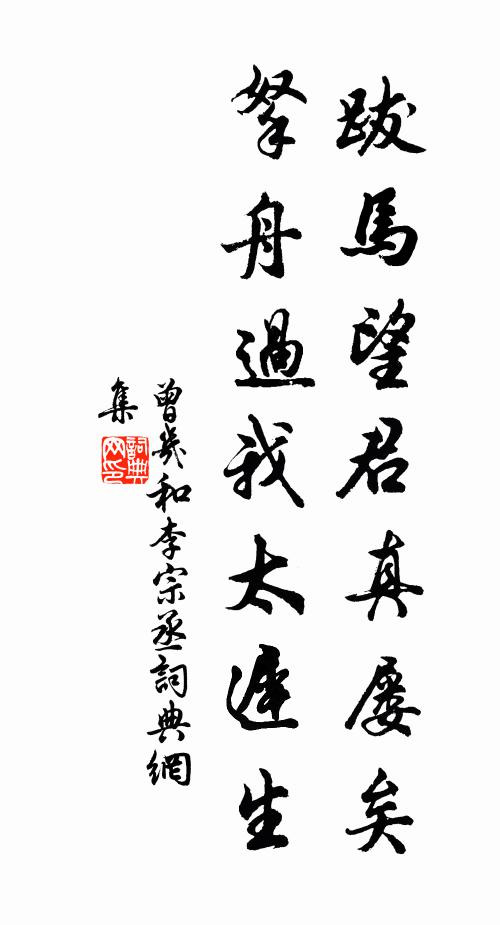 跋馬望君真屡矣
拏舟過我太遲生
曾幾和李宗丞詞典網
集
詞典
网印